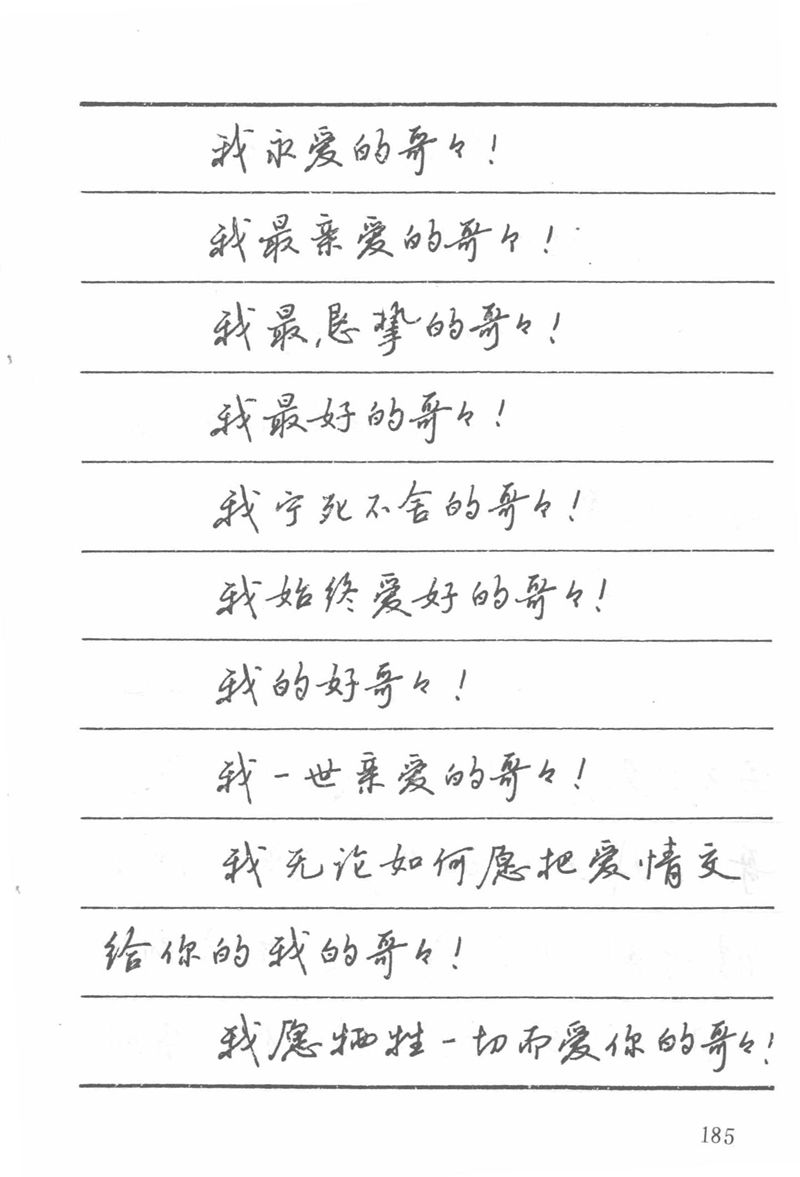 我永爱的哥々!
我最亲爱的哥々!
我最恳挚的哥々!
我最好的哥々!
我宁死不舍的哥々!
我始终爱好的哥々!
我的好哥々!
我一世亲爱的哥々!
我无论如何愿把爱情交
给你的我的哥々!
我愿牺牲一切而爱你的哥々!
185